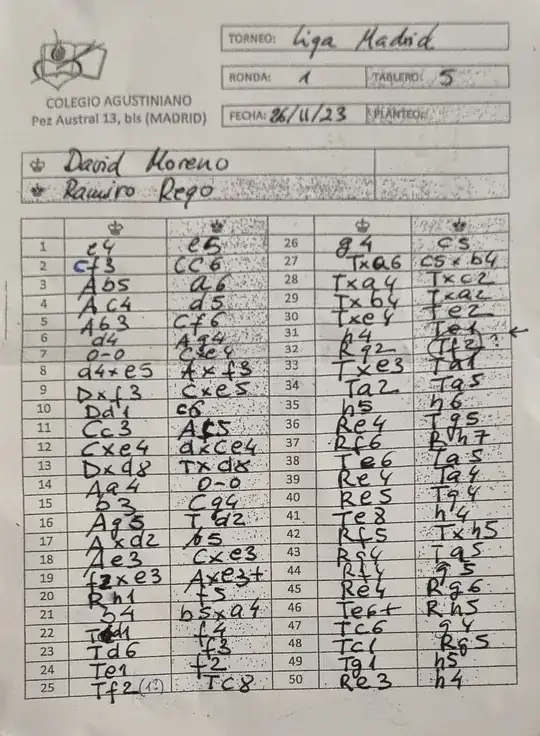 TORNEO: Liga Madrid
RONDA: 1 TABLERO: 5
COLEGIO AGUSTINIANO
Pez Austral 13, bis (MADRID)
FECHA: 26/11/23 PLANTEO:
David Moreno
Ramiro Rego
1 e4 e5 26 g4 c5
2 Cf3 CC6 27 Txa6 c5xb4
3 Ab5 a6 28 Txa4 Txc2
4 Ac4 d5 29 Txb4 Txa2
5 Ab3 Cf6 30 Txe4 Te2
6 d4 Ag4 31 h4 Te1
7 0-0 Cxe4 32 Rg2 Tf2 ?
8 d4xe5 Axf3 33 Txe3 Ta1
9 Dxf3 Cxe5 34 Ta2 Ta5
10 Dd1 c6 35 h5 h6
11 Cc3 Ac5 36 Re4 Tg5
12 Cxe4 dxCe4 37 Rf6 Rh7
13 Dxd8 Txd8 38 Te6 Ta5
14 Ag4 0-0 39 Re4 Ta4
15 b3 Cg4 40 Re5 Tg4
16 Ag5 Td2 41 Te8 h4
17 Axd2 b5 42 Rf5 Txh5
18 Ae3 Cxe3 43 Rg4 Ta5
19 f2xe3 Axe3+ 44 Rf4 g5
20 Rh1 f5 45 Re4 Rg6
21 b4 b5xa4 46 Te6+ Rh5
22 Td1 f4 47 Tc6 g4
23 Td6 f3 48 Tc1 Rg5
24 Te1 f2 49 Tg1 h5
25 Tf2 Tc8 50 Re3 h4